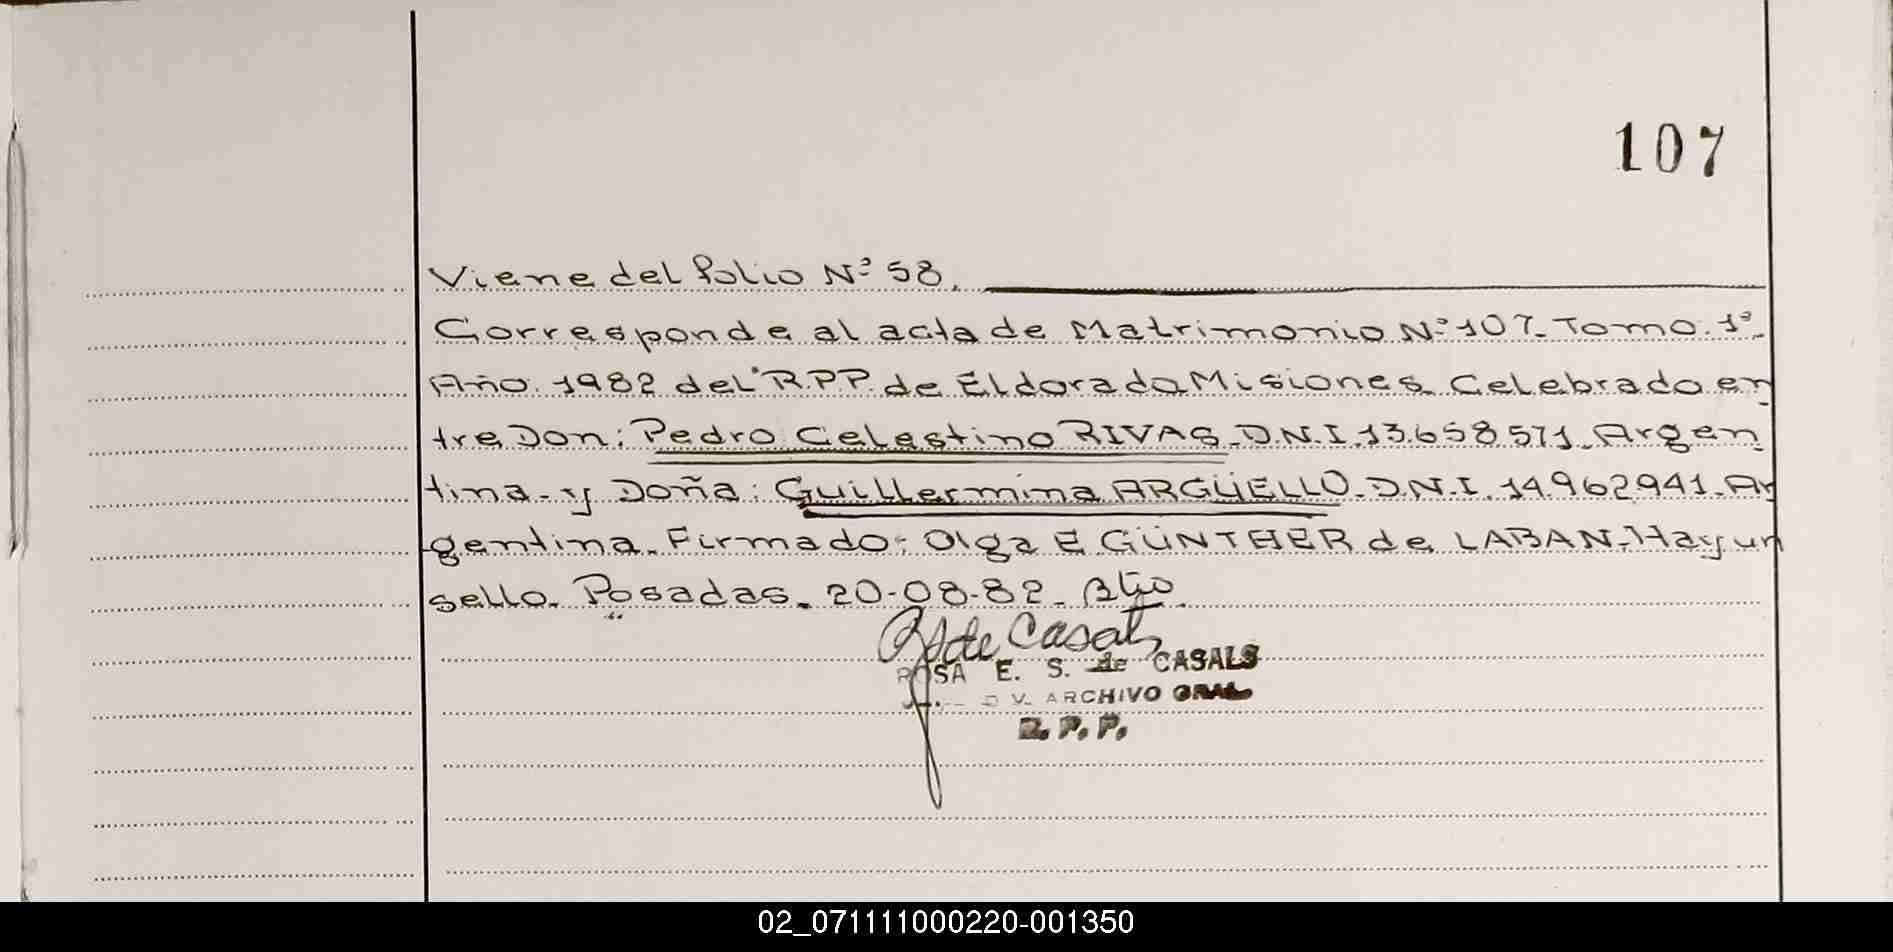 107
Viene del folio Nº 58.
Corresponde al acta de Matrimonio Nº 107. Tomo. 1º.
Año. 1982 del R.P.P. de Eldorado Misiones. Celebrado en
tre Don: Pedro Celestino RIVAS. D.N.I. 13.658.571. Argen
tina. y Doña: Guillermina ARGÜELLO. D.N.I. 14.962.941. Ar
gentina. Firmado: Olga E GÜNTHER de LABAN. Hay un
sello. Posadas. 20-08-82.
de Casals
ROSA E. S. de CASALS
ARCHIVO GRAL
R. P. P.
02_071111000220-001350